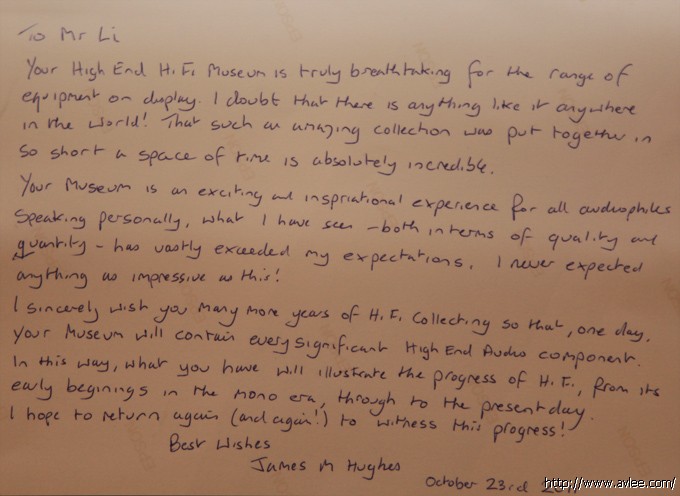 To Mr Li
Your High End Hi Fi Museum is truly breathtaking for the range of
equipment on display. I doubt that there is anything like it anywhere
in the world! That such an amazing collection was put together in
so short a space of time is absolutely incredible.
Your Museum is an exciting and inspriational experience for all audiophiles
Speaking personally, what I have seen - both in terms of quality and
quantity - has vastly exceeded my expectations. I never expected
anything as impressive as this!
I sincerely wish you many more years of Hi.Fi. Collecting so that, one day,
your Museum will contain every significant High End Audio component.
In this way, what you have will illustrate the progress of Hi.Fi, from its
early beginings in the mono era, through to the present day.
I hope to return again (and again!) to witness this progress!
Best Wishes
James M Hughes
October 23rd
http://www.avlee.com/